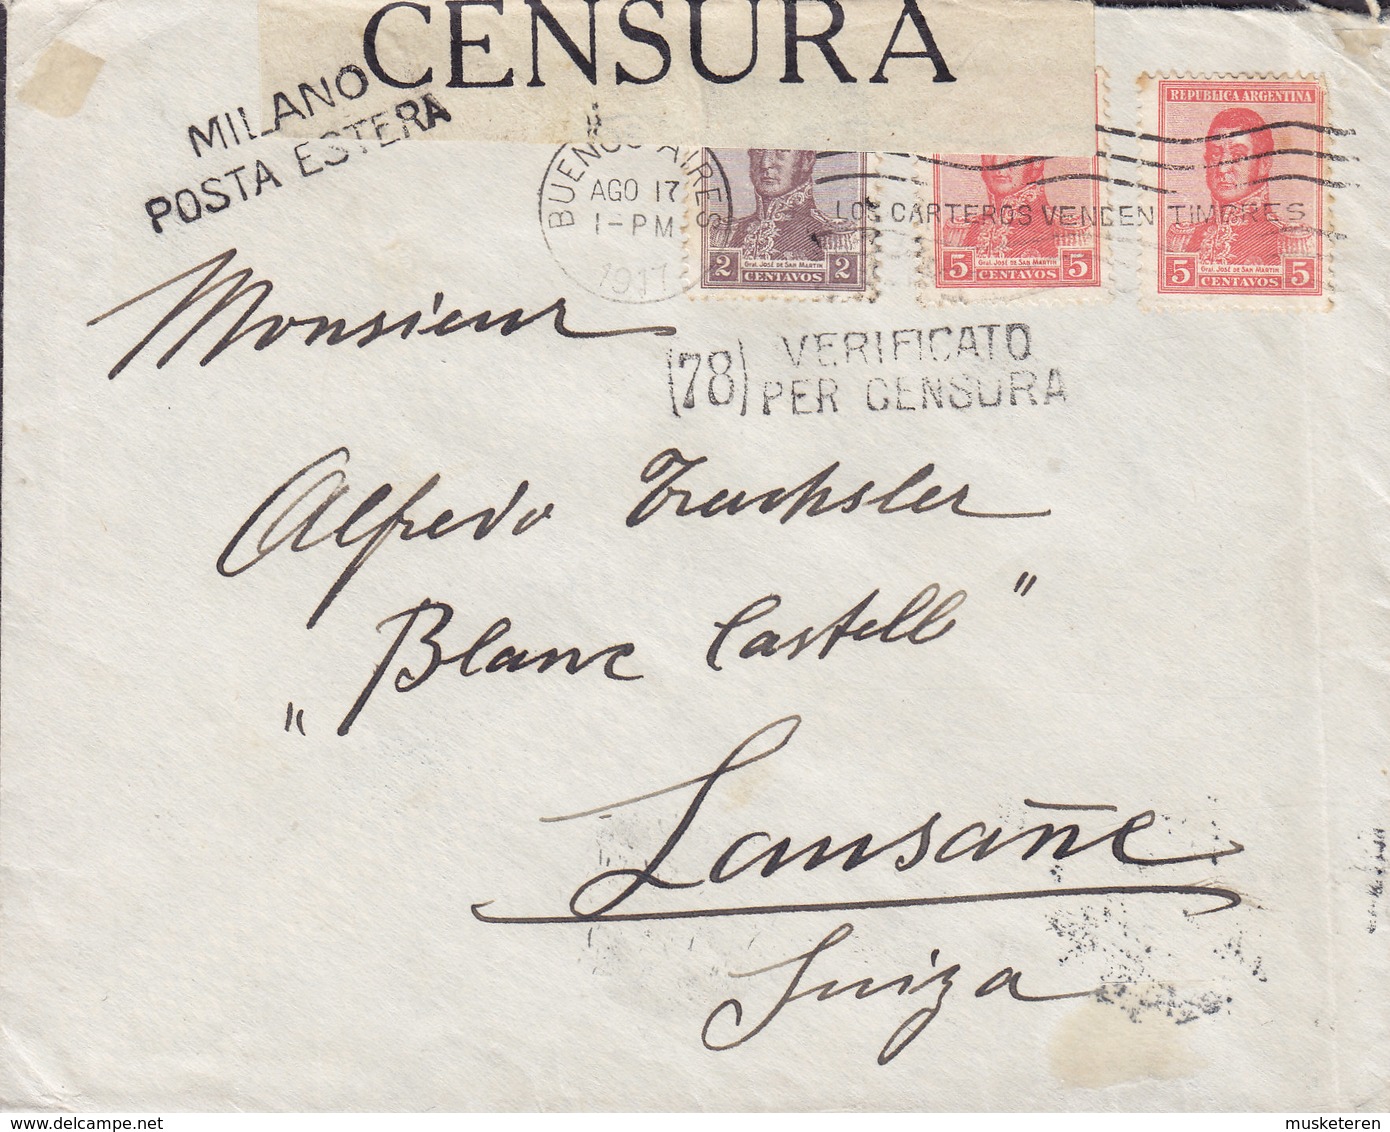 CENSURA
MILANO
POSTA ESTERA
REPUBLICA ARGENTINA
BUENOS AIRES
AGO 17
1-PM
1917
LOS CARTEROS VENDEN TIMBRES
2 Gral. José de San Martin 2
CENTAVOS
5 Gral. José de San Martin 5
CENTAVOS
5 Gral. José de San Martin 5
CENTAVOS
Monsieur
(78) VERIFICATO
PER CENSURA
Alfredo Trachsler
"Blanc Castell"
Lausañe
Suiza
www.delcampe.net
musketeren